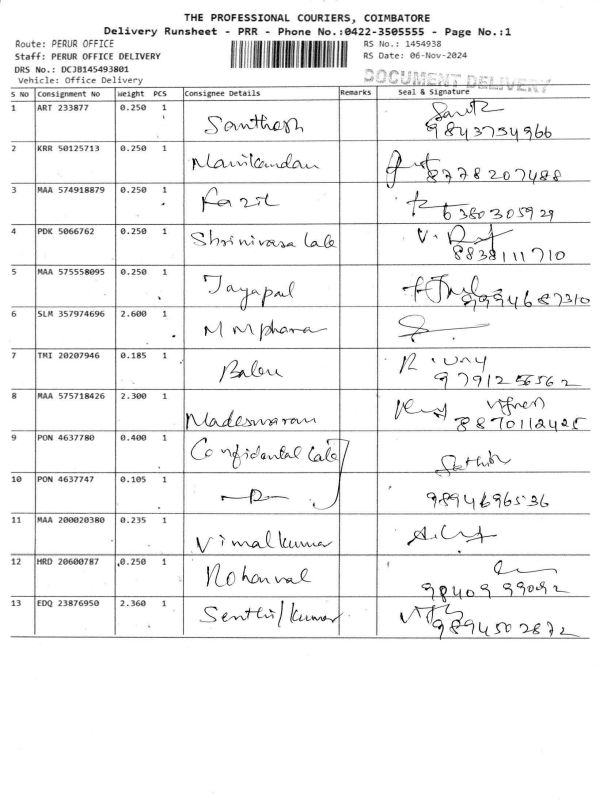 THE PROFESSIONAL COURIERS, COIMBATORE
Delivery Runsheet - PRR - Phone No.:0422-3505555 - Page No.:1
Route: PERUR OFFICE
RS No.: 1454938
Staff: PERUR OFFICE DELIVERY
RS Date: 06-Nov-2024
DRS No.: DCJB145493801
Vehicle: Office Delivery
DOCUMENT DELIVERY
S No Consignment No Weight PCS Consignee Details Remarks Seal & Signature
1 ART 233877 0.250 1 Santhosh
9843754966
2 KRR 50125713 0.250 1 Manikandan
8778207488
3 MAA 574918879 0.250 1 Fazil
6380305929
4 PDK 5066762 0.250 1 Shrinivasa Lale V. Raj
8838111710
5 MAA 575558095 0.250 1 Jayapal
9994687310
6 SLM 357974696 2.600 1 M M pharma
7 TMI 20207946 0.185 1 Balu
9791256562
8 MAA 575718426 2.300 1 Madeswaran
8870112425
9 PON 4637780 0.400 1 Confidental Lale Sathish
10 PON 4637747 0.105 1
9894696536
11 MAA 200020380 0.235 1 Vimalkumar
12 HRD 20600787 0.250 1
98409 99092
13 EDQ 23876950 2.360 1 Senthil kumar
9894502872